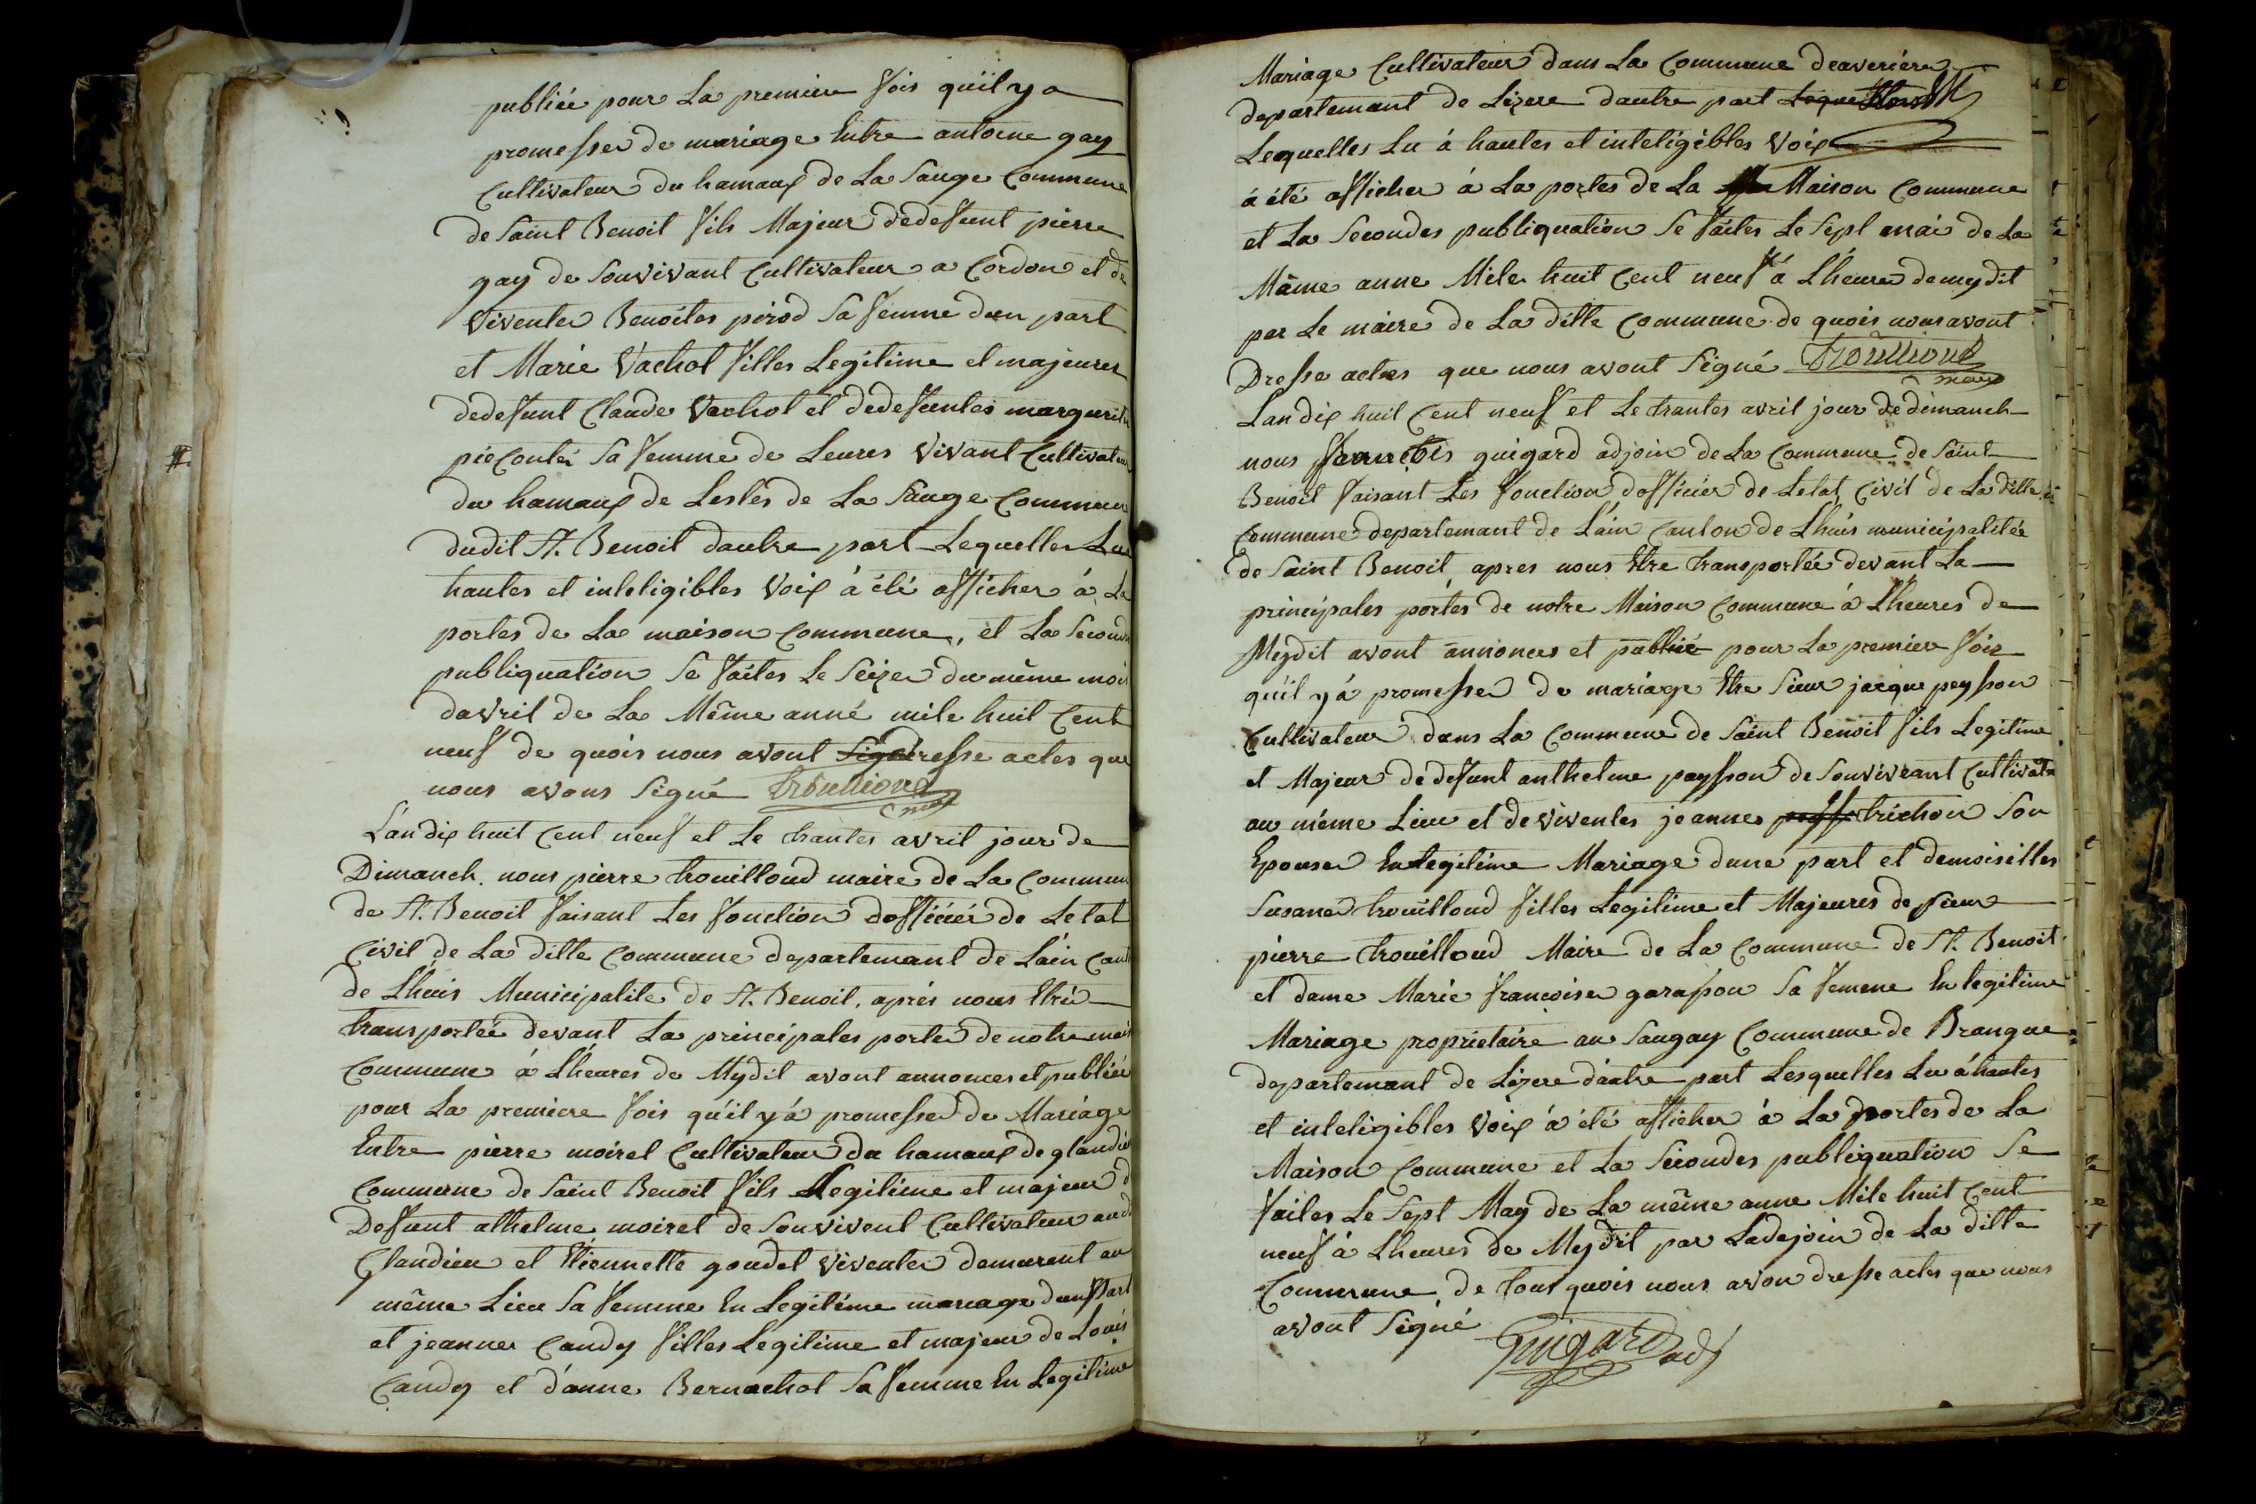 publiée pour La premiere fois quil y a
promesses de mariage Entre antoine gay
Cultivateur du hamaux de La Sauge Commune
de Saint Benoit fils Majeur dedefunt pierre
gay de Souvivant Cultivateur a Cordon et de
viventes Benoites pirod Sa femme dun part
et Marie Vachot filles Legitime et majeures
dedefunt Claude Vachot et dedefuntes marguerite
pie Sa femme de Leures vivant Cultivateur
du hamaux de Lesles de La Sauge Commune
dudit St. Benoit dautre part Lequelles Lue
hautes et inteligibles voix à été afficher à La
portes de La maison Commune, et La Seconde
publiquation Se faites Le Seizes du même mois
davril de La Même anné mile huit Cent
neuf de quois nous avont dresse actes que
nous avons Signé trouilloud
maire
L'an dix huit Cent neuf et Le trantes avril jour de
Dimanch. nous pierre trouilloud maire de La Commune
de St. Benoit faisant Les fonction dofficiér de Letat
Civil de La ditte Commune departemant de Lain Cant
de Lhuis Municipalite de St. Benoit, aprés nous Etré
transportée devant La principales portes de notre mais
Commune à Lheures de Mydit avont annonces et publiée
pour La premiere fois qu'il y'à promesses de Mariage
Entre pierre moiret Cultivateur du hamaux de glandie
Commune de Saint Benoit fils Legitime et majeur d
Deffunt athelme moiret de Souvivent Cultivateur aud
Glandieu et Etiennette goudet viventes demeurent au
même Lieu Sa femme En Legitime mariage dun part
et jeannes Candy filles Legitime et majeur de Louis
Candy et d'anne Bernachot Sa femme En Legitime
Mariage Cultivateur dans La Commune deaverieres
departemant de Lizere dautre part
Lequelles Lu à hautes et inteligibles Voix
à été afficher à La portes de La Maison Commune
et La Secondes publiquation Se faites Le Sept mai de La
Même anne Mile huit Cent neuf à Lheures demydit
par Le maire de La ditte Commune de quois nous avont
Dresse actes que nous avont Signé trouilloud
maire
Lan dix huit Cent neuf et Le trantes avril jour de dimanch
nous guigard adjoin de La Commune de Saint
Benoit faisant Les fonction dofficier de Letat Civil de La ditte
Commune departemant de L'ain Canton de Lhuis municipalitée
de Saint Benoit, apres nous Etre transportée devant La
principales portes de notre Maison Commune à Lheures de
Meydit avont annonces et publié pour La premier fois
qu'il y'à promesses de mariage Etre Sieur jacque peysson
Cultivateur dans La Commune de Saint Benoit fils Legitime
et Majeur dedefunt anthelme peysson de Souvivant Cultivat
au même Lieu et de viventes jeannes trichon Son
Epouses En Legitime Mariage dune part et demoiselles
Susanes trouilloud filles Legitime et Majeures de Sieur
pierre trouilloud Maire de La Commune de St. Benoit
et dame Marie françoises garapon Sa femme En legitime
Mariage proprietaire au Saugay Commune de Brangue
departemant de Lizere dautre part Lesquelles Lu à hautes
et inteligibles voix à été afficher à La portes de La
Maison Commune et La Secondes publiquation Se
faites Le Sept May de La même anne Mile huit Cent
neuf à Lheures de Meydit par Ladejoin de La ditte
Commune, de tout quois nous avon dresse actes que nous
avont Signé
Guigard adj